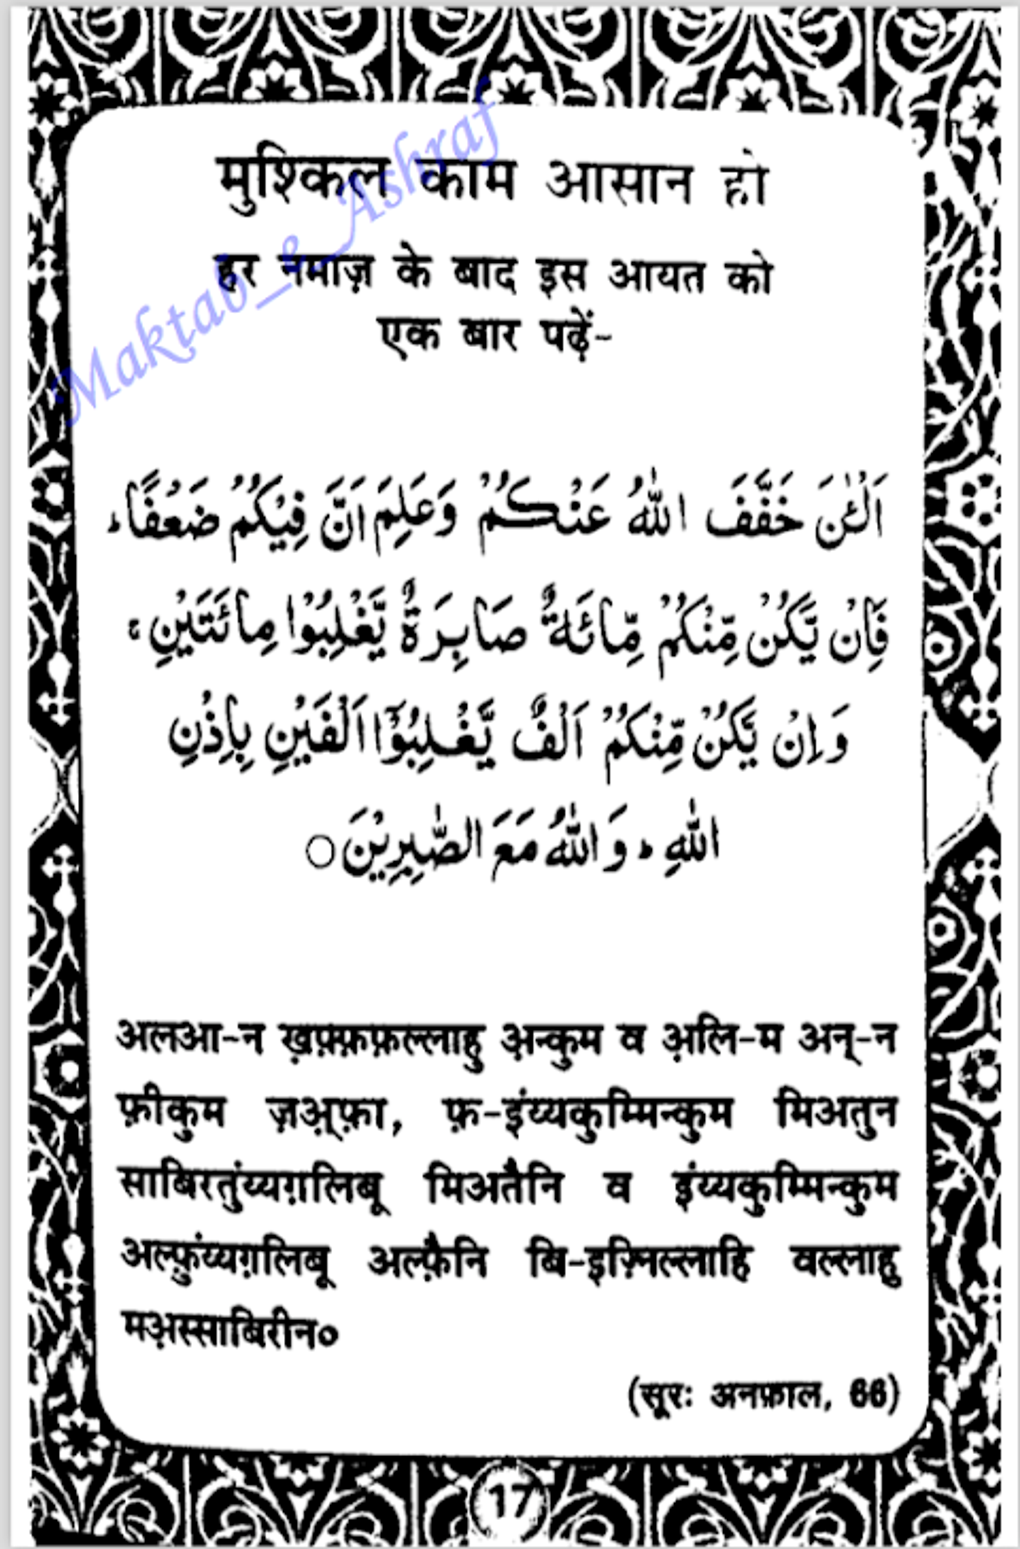 मुश्किल काम आसान हो
हर नमाज़ के बाद इस आयत को
एक बार पढ़ें-
اَلْـٰٔنَ خَفَّفَ اللّٰهُ عَنْكُمْ وَعَلِمَ اَنَّ فِيْكُمْ ضَعْفًا ؕ
فَاِنْ يَّكُنْ مِّنْكُمْ مِّائَةٌ صَابِرَةٌ يَّغْلِبُوْا مِائَتَيْنِ ۚ
وَاِنْ يَّكُنْ مِّنْكُمْ اَلْفٌ يَّغْلِبُوْٓا اَلْفَيْنِ بِاِذْنِ
اللّٰهِ ؕ وَاللّٰهُ مَعَ الصّٰبِرِيْنَ ○
अलआ-न ख़फ़्फ़फ़ल्लाहु अ़न्कुम व अ़लि-म अन्-न
फ़ीकुम ज़अ़्फ़ा, फ़-इंय्यकुम्मिन्कुम मिअतुन
साबिरतुंय्यग़लिबू मिअतैनि व इंय्यकुम्मिन्कुम
अल्फ़ुंय्यग़लिबू अल्फ़ैनि बि-इज़्निल्लाहि वल्लाहु
मअ़स्साबिरीन०
(सूरः अनफ़ाल, 66)
17
Maktab_e_Ashraf